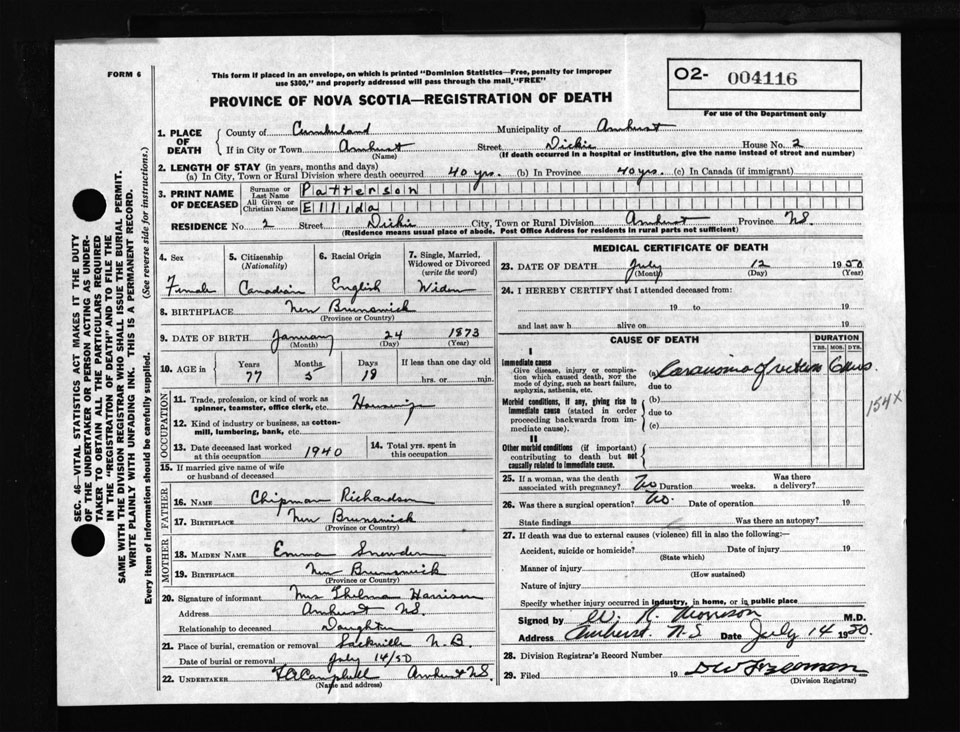 FORM 6
This form if placed in an envelope, on which is printed "Dominion Statistics—Free, penalty for improper
use $300," and properly addressed will pass through the mail "FREE"
O2- 004116
For use of the Department only
PROVINCE OF NOVA SCOTIA—REGISTRATION OF DEATH
SEC. 46—VITAL STATISTICS ACT MAKES IT THE DUTY
OF THE UNDERTAKER OR PERSON ACTING AS UNDER-
TAKER TO OBTAIN ALL THE PARTICULARS REQUIRED
IN THE "REGISTRATION OF DEATH" AND TO FILE THE
SAME WITH THE DIVISION REGISTRAR WHO SHALL ISSUE THE BURIAL PERMIT.
WRITE PLAINLY WITH UNFADING INK. THIS IS A PERMANENT RECORD.
Every item of information should be carefully supplied. (See reverse side for instructions.)
1. PLACE OF DEATH
County of Cumberland Municipality of Amherst
If in City or Town Amherst Street Dickie House No. 2
(Name) (If death occurred in a hospital or institution, give the name instead of street and number)
2. LENGTH OF STAY (in years, months and days)
(a) In City, Town or Rural Division where death occurred 40 yrs. (b) In Province 40 yrs. (c) In Canada (if immigrant)
3. PRINT NAME OF DECEASED
Surname or Last Name Patterson
All Given or Christian Names Ellida
RESIDENCE No. 2 Street Dickie City, Town or Rural Division Amherst Province N.S.
(Residence means usual place of abode. Post Office Address for residents in rural parts not sufficient)
4. Sex
Female
5. Citizenship
(Nationality)
Canadian
6. Racial Origin
English
7. Single, Married,
Widowed or Divorced
(write the word)
Widow
8. BIRTHPLACE New Brunswick
(Province or Country)
9. DATE OF BIRTH January 24 1873
(Month) (Day) (Year)
10. AGE in Years Months Days If less than one day old
77 5 18 hrs. or min.
OCCUPATION
11. Trade, profession or kind of work as
spinner, teamster, office clerk, etc. Housewife
12. Kind of industry or business, as cotton-
mill, lumbering, bank, etc.
13. Date deceased last worked
at this occupation 1940
14. Total yrs. spent in
this occupation
15. If married give name of wife
or husband of deceased
FATHER
16. NAME Chipman Richardson
17. BIRTHPLACE New Brunswick
(Province or Country)
MOTHER
18. MAIDEN NAME Emma Snowden
19. BIRTHPLACE New Brunswick
(Province or Country)
20. Signature of informant Mrs Thelma Harrison
Address Amherst N.S.
Relationship to deceased Daughter
21. Place of burial, cremation or removal Sackville N.B.
Date of burial or removal July 14/50
22. UNDERTAKER Campbell Amherst N.S.
(Name and address)
MEDICAL CERTIFICATE OF DEATH
23. DATE OF DEATH July 12 1950
(Month) (Day) (Year)
24. I HEREBY CERTIFY that I attended deceased from:
19 to 19
and last saw h alive on 19
CAUSE OF DEATH
DURATION
YRS. MOS. DYS.
I
Immediate cause
Give disease, injury or complica-
tion which caused death, NOT the
mode of dying, such as heart failure,
asphyxia, asthenia, etc.
(a) Carcinoma of rectum
due to
154X
Morbid conditions, if any, giving rise to
immediate cause (stated in order
proceeding backwards from im-
mediate cause).
(b)
due to
(c)
II
Other morbid conditions (if important)
contributing to death but not
causally related to immediate cause.
25. If a woman, was the death
associated with pregnancy? No Duration weeks. Was there
a delivery?
26. Was there a surgical operation? No. Date of operation 19
State findings Was there an autopsy?
27. If death was due to external causes (violence) fill in also the following:—
Accident, suicide or homicide? Date of injury 19
(State which)
Manner of injury
(How sustained)
Nature of injury
Specify whether injury occurred in industry, in home, or in public place
Signed by W. R. Morrison M.D.
Address Amherst N.S. Date July 14 1950.
28. Division Registrar's Record Number
29. Filed 19 Freeman
(Division Registrar)